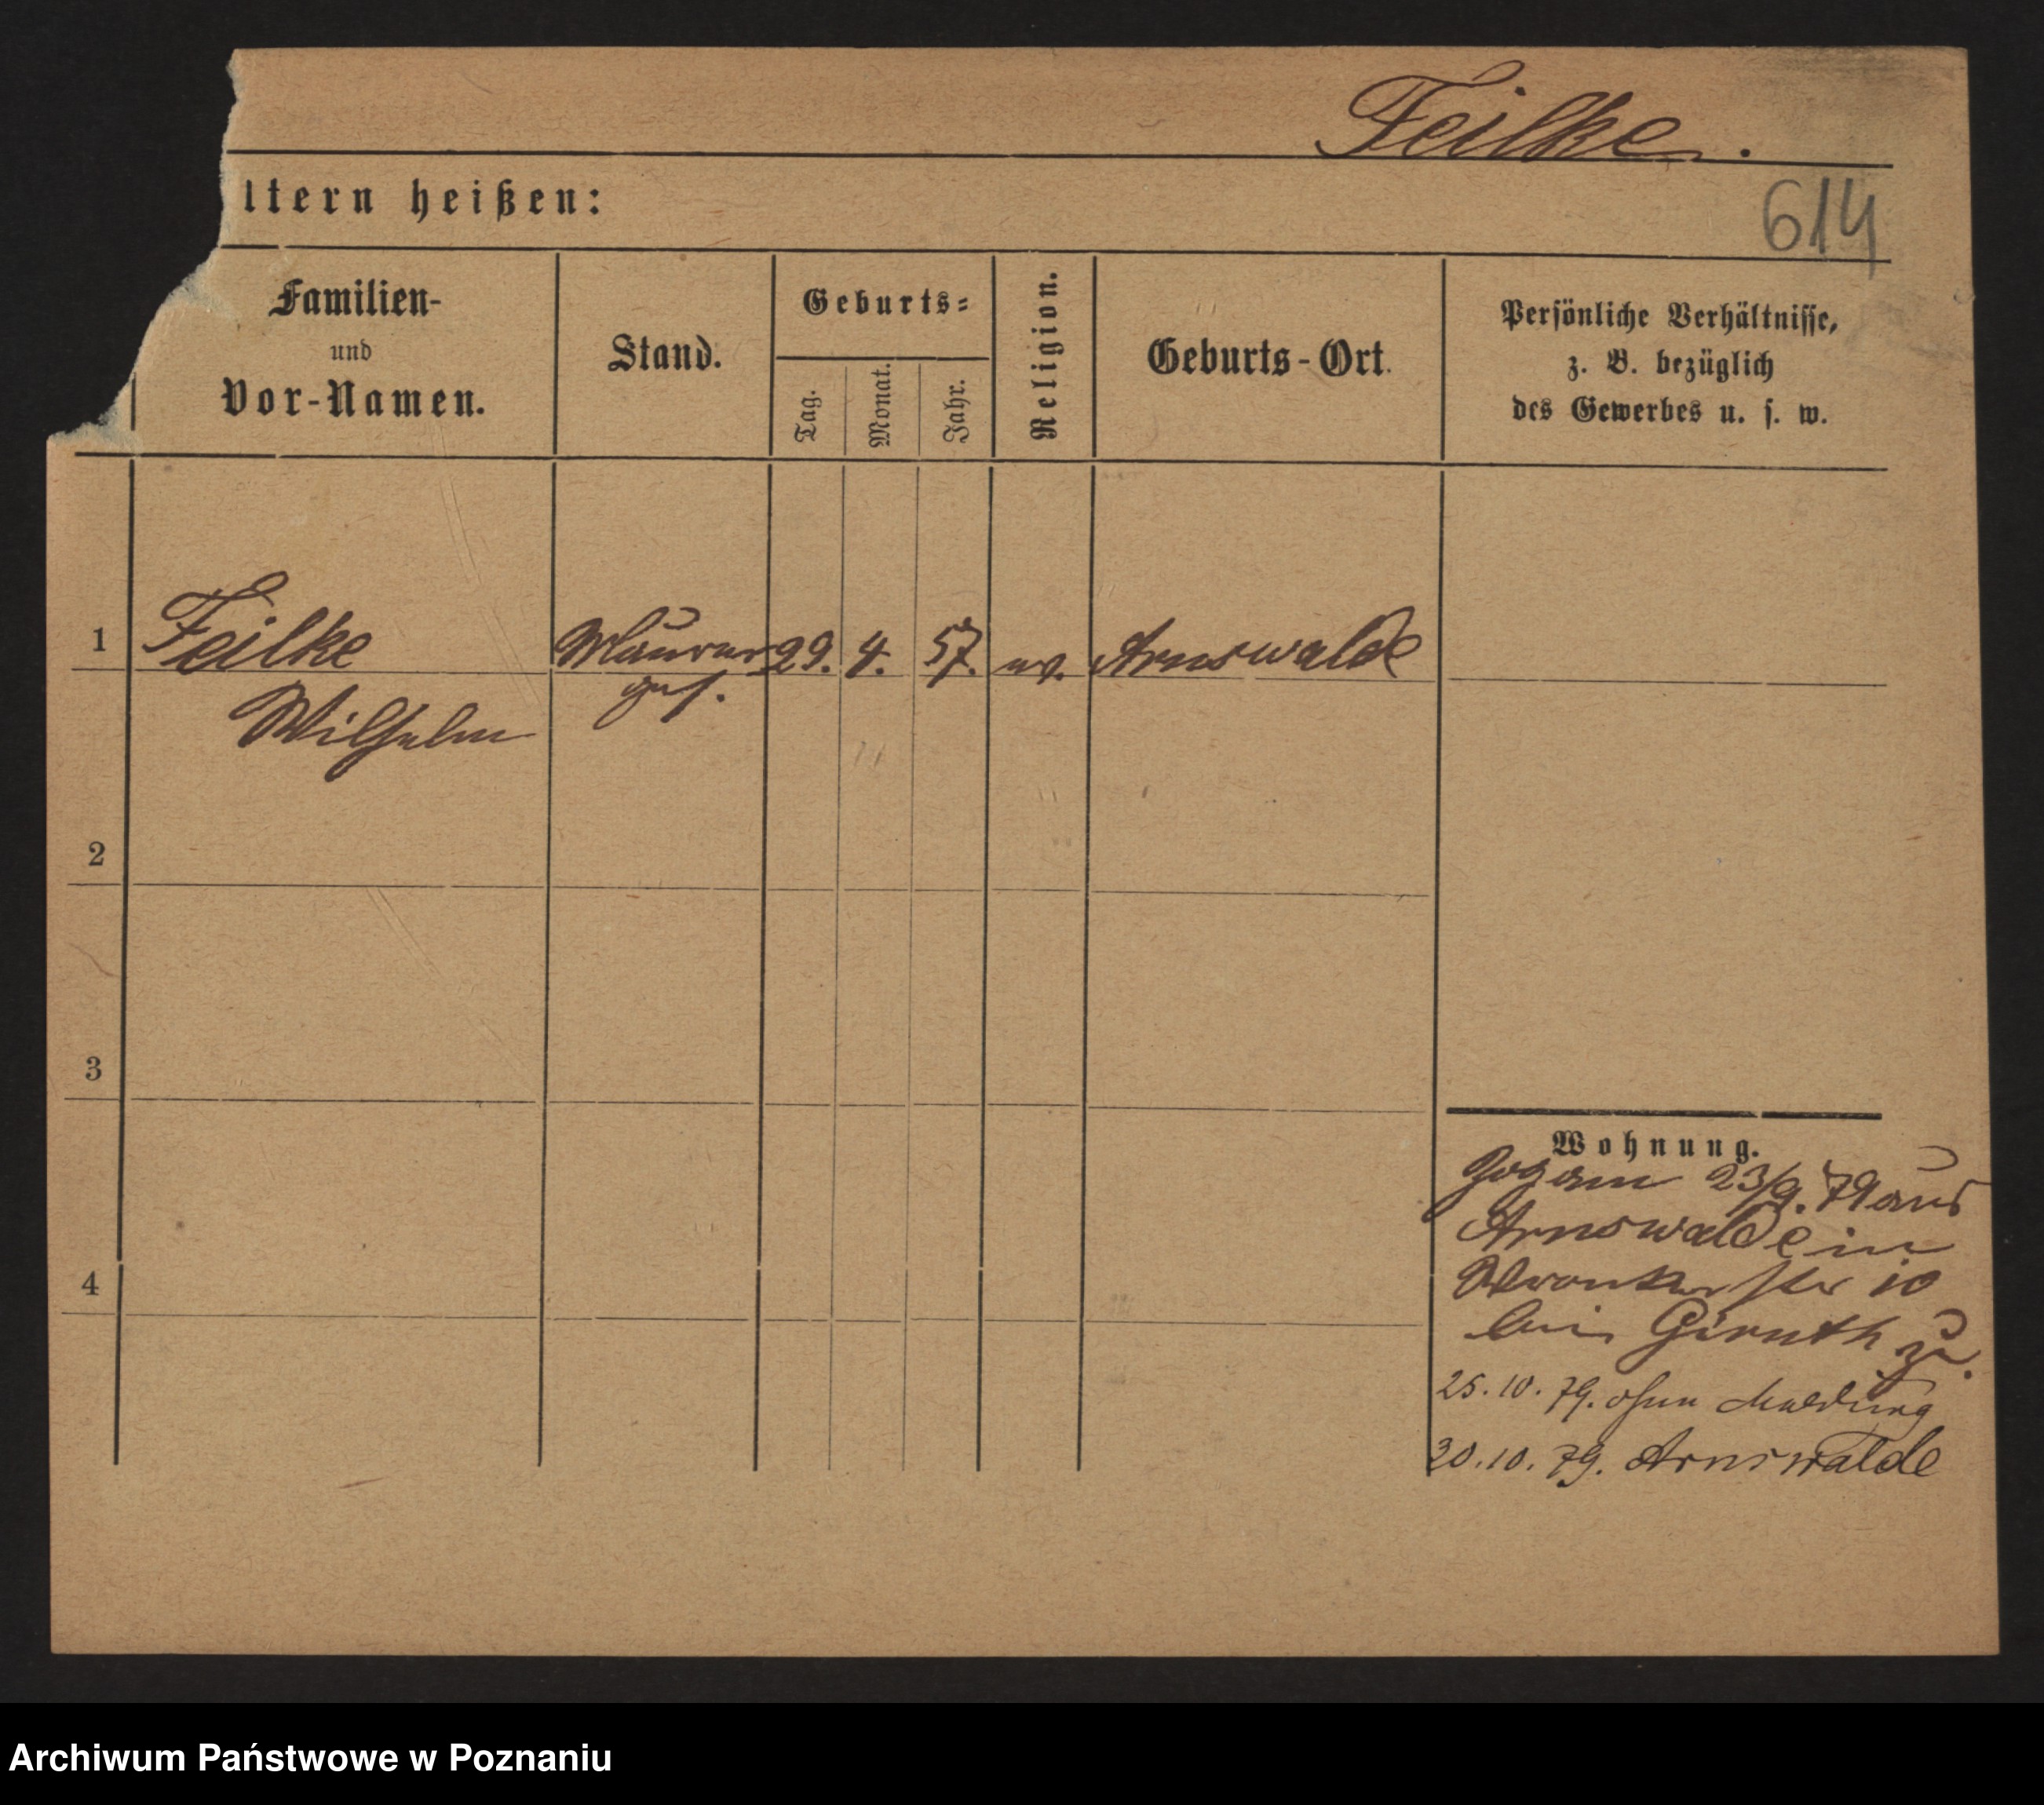 Feilke.
ltern heißen:
614
Familien-
und
Vor-Namen.
Stand.
Geburts-
Tag.
Monat.
Jahr.
Religion.
Geburts-Ort.
Persönliche Verhältnisse,
z. B. bezüglich
des Gewerbes u. s. w.
1
Feilke
Wilhelm
Maurer
ges.
29.
4.
57.
ev.
Arnswalde
2
3
4
Wohnung.
Zog am 23/9. 79 aus
Arnswalde in
Wronkerstr 10
bei Girnth zu.
25. 10. 79. ohne Meldung
30. 10. 79. Arnswalde
Archiwum Państwowe w Poznaniu